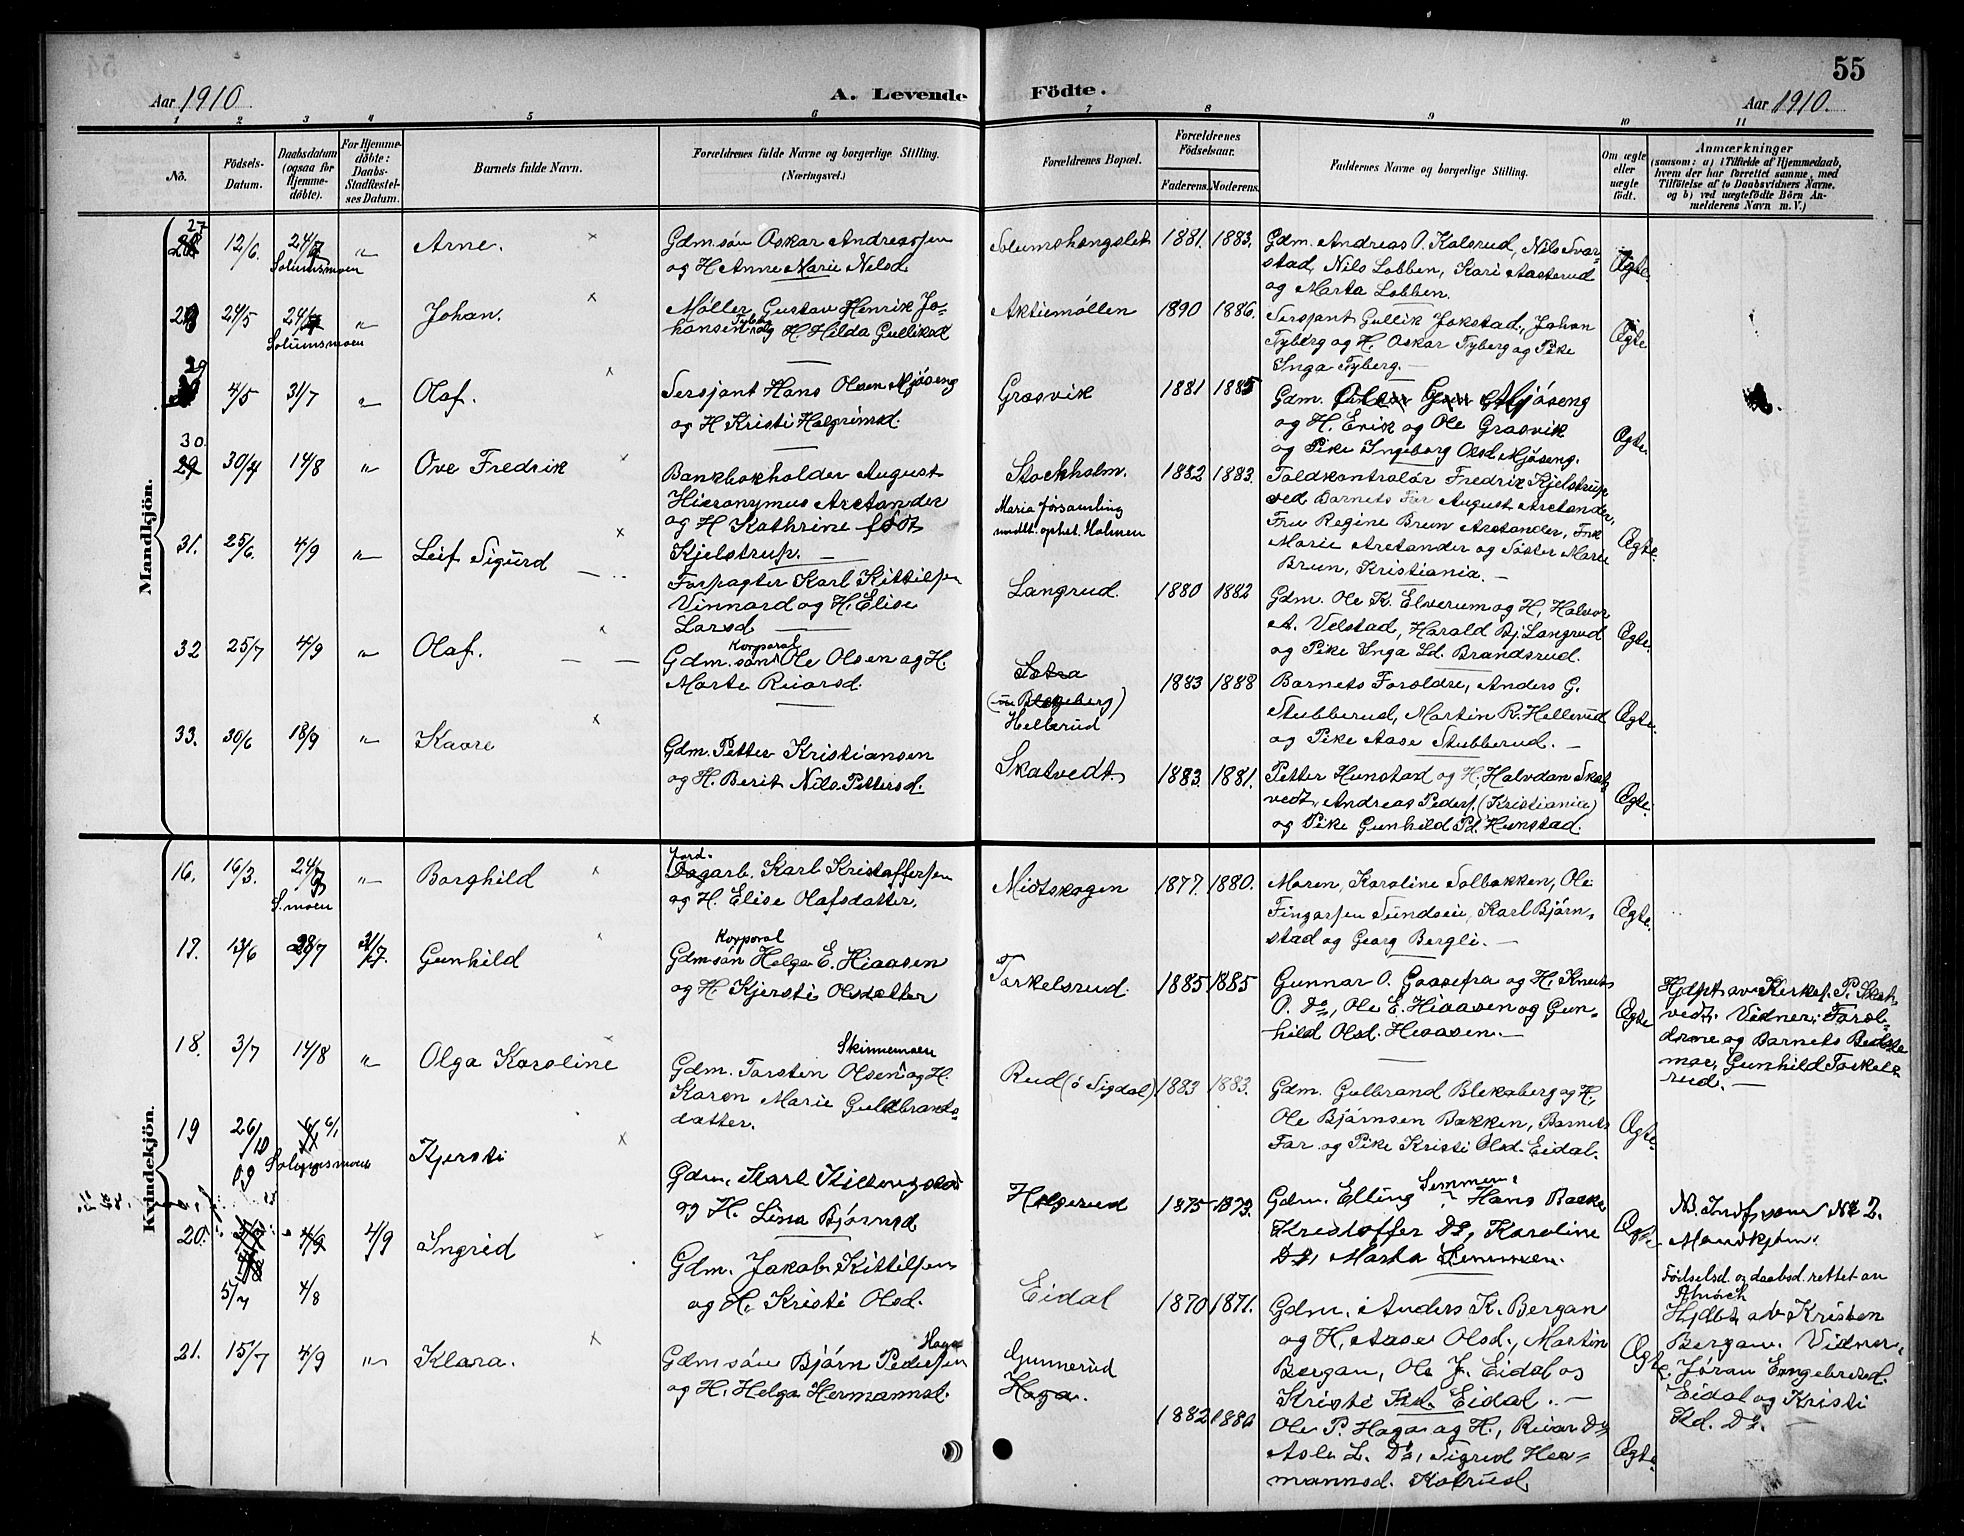 55
Aar 1910.
A. Levende Födte.
Aar 1910.
1 2 3 4 5 6 7 8 9 10 11
No.
Födsels-Datum.
Daabsdatum (ogsaa for Hjemme-döbte).
For Hjemme-döbte: Daabs-Stadfæstel-ses Datum.
Barnets fulde Navn.
Forældrenes fulde Navne og borgerlige Stilling. (Næringsvei.)
Forældrenes Bopæl.
Forældrenes Födselsaar.
Faderens. Moderens.
Faddernes Navne og borgerlige Stilling.
Om ægte eller uægte födt.
Anmærkninger
(saasom: a) i Tilfælde af Hjemmedaab,
hvem der har forrettet samme, med
Tilföielse af to Daabsvidners Navne,
og b) ved uægtefödte Börn An-
melderens Navn m. V.)
Mandkjön.
27
12/6. 24/7 " Arne.
Solumsmoen
Gdm.søn Oskar Andreassen
og H. Anne Marie Nilsd.
1881. 1883.
Gdm. Andreas O. Kalsrud, Nils Svar-
stad, Nils Lobben, Kari Aasterud
og Marta Lobben.
Ægte.
28 24/5 24/7 " Johan.
Solumsmoen
Møller Gustav Henrik Jo-
hansen Tyberg og H. Hilda Gulliksd
Aktiemøllen
1890 1886.
Sersjant Gullik Jokstad, Johan
Tyberg og H. Oskar Tyberg og Pike
Inga Tyberg. —
Ægte
29
4/5 31/7 " Olaf.
Sersjant Hans Olsen Mjøseng
og H Kristi Halgrimsd.
Grasvik
1881 1885
Gdm. Mjøseng
og H. Erik og Ole Grasvik
og Pike Ingeborg Olsd Mjøseng.
Ægte.
30.
29 30/4 14/8 " Ove Fredrik
Bankbokholder August
Hieronymus Arctander
og H Kathrine født
Kjelstrup. —
Stockholm.
Maria forsamling
midlt. ophol. Holmen
1882 1883.
Toldkontrolør Fredrik Kjelstrup
ved Barnets Far August Arctander,
Fru Regine Brun Arctander, Frk
Marie Arctander og Søster Marie
Brun, Kristiania. —
Ægte.
31. 25/6. 4/9 " Leif Sigurd
Forpagter Karl Kittilsen
Vinnard og H. Elise
Larsd
Langrud.
1880 1882
Gdm. Ole K. Elverum og H, Halvor
A. Velstad, Harald Bj. Langrud
og Pike Inga Ld. Brandsrud.
Ægte.
32 25/7 4/9 " Olaf.
Korporal
Gdm.søn Ole Olsen og H.
Marte Reiarsd.
Sotra
(Blegeberg)
Hellerud
1883 1888
Barnets Foroldre, Anders G.
Stubberud, Martin R. Hellerud
og Pike Aase Stubberud. —
Ægte.
33. 30/6 18/9 " Kaare
Gdm. Petter Kristiansen
og H. Berit Nils Pettersd.
Skatvedt.
1883. 1881.
Petter Hunstad og H, Halvdan Skat-
vedt, Andreas Peders. (Kristiania)
og Pike Gunhild Pd. Hunstad.
Ægte.
Kvindekjön.
16. 16/3. 24/7 " Borghild
S.moen
Jord.
Dagarb. Karl Kristoffersen
og H. Elise Olafsdatter.
Midtskogen
1877. 1880.
Maren, Karoline Solbakken, Ole
Fingarsen Sundseie, Karl Bjørn-
stad og Georg Bergli. —
Ægte.
17. 13/6 28/7 31/7. Gunhild
Korporal
Gdmsøn Helge E. Hiaasen
og H. Kjersti Olsdatter
Torkelsrud.
1885 1885
Gunnar O. Gaasefra og H. Knut
O. Do, Ole E. Hiaasen og Gun-
hild Olsd. Hiaasen. —
Ægte
Hjdpt av Kirkes. P. Skat-
vedt. Vidner: Forol-
drene og Barnets Bedste-
mor, Gunhild Torkels-
rud. —
18. 3/7 14/8 " Olga Karoline
Skinnemoen
Gdm. Torsten Olsen og H.
Karen Marie Guldbrands-
datter.
Rud (ö Sigdal)
1883 1883.
Gdm. Gulbrand Blekeberg og H,
Ole Bjørnsen Bakken, Barnets
Far og Pike Kristi Olsd. Eidal.
Ægte.
19 26/10 09 6/1 Kjersti
Solumsmoen
og H. Lina Bjørnsd
1875 1873.
Gdm. Elling Simmen, Hans Bakke
Kristoffer Do, Karoline
Do, Marta Simmen.
Ægte.
N. Indf. som No 2.
Mandkjøn.
20. 4/9 4/9 Ingrid
5/7 4/8
Gdm. Jakob Kittilsen
og H. Kristi Olsd.
Eidal
1870 1871.
Gdm. Anders K. Bergan
og H, Aase Olsd., Martin
Bergan, Ole J. Eidal og
Kristi Kd. Eidal. —
Ægte.
Föilselsd. og daabsd. rettet av
Hjdbt av Kristen
Bergan. Vidner,
Jøran Engebretsd.
Eidal og Kristi
Kd. Do.
21. 15/7 4/9 " Klara.
Haga
Gdmsøn Bjørn Pedersen
og H. Helga Hermannsd.
Gunnerud
Haga.
1882 1880
Ole P. Haga og H, Reiar Do,
Asle L. Do, Sigrid Her-
mannsd. Kolsrud
Ægte.